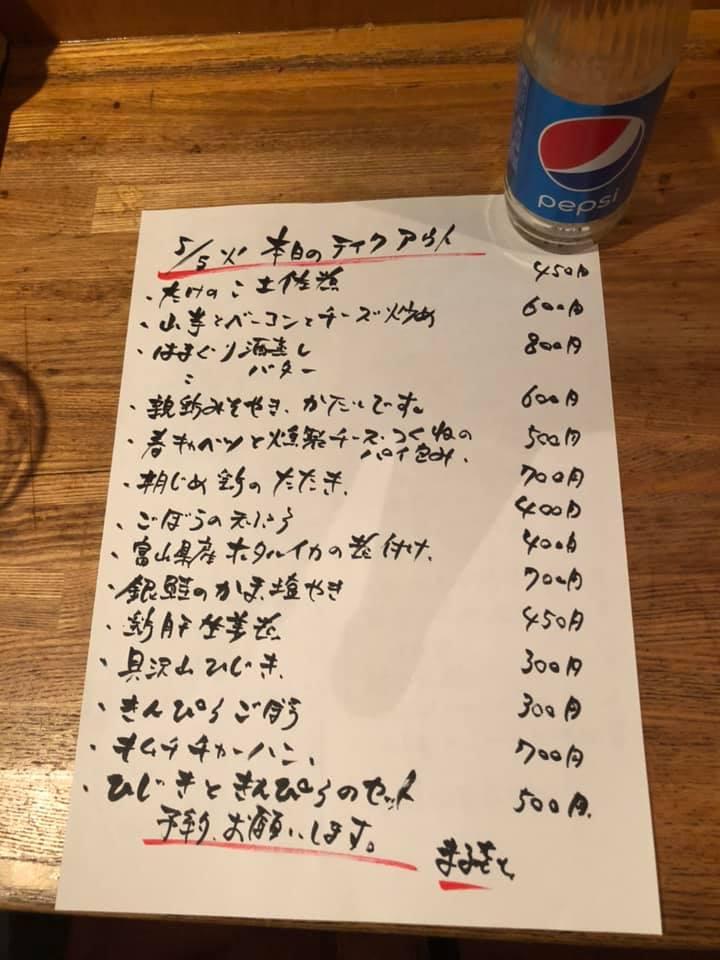 pepsi
5/5 火 本日のテイクアウト
・たけのこ土佐煮 450円
・山芋とベーコンとチーズ炒め 600円
・はまぐり酒蒸し 800円
バター
・親鶏みそやき、かたいです。 600円
・春キャベツと燻製チーズつくねの 500円
パイ包み、
・朝じめ鶏のたたき、 700円
・ごぼうの天ぷら 400円
・富山県産ホタルイカの煮付け、 400円
・銀鮭のかま塩やき 700円
・鶏肝生姜煮 450円
・具沢山ひじき、 300円
・きんぴらごぼう 300円
・キムチチャーハン、 700円
・ひじきときんぴらのセット 500円
予約、お願いします。